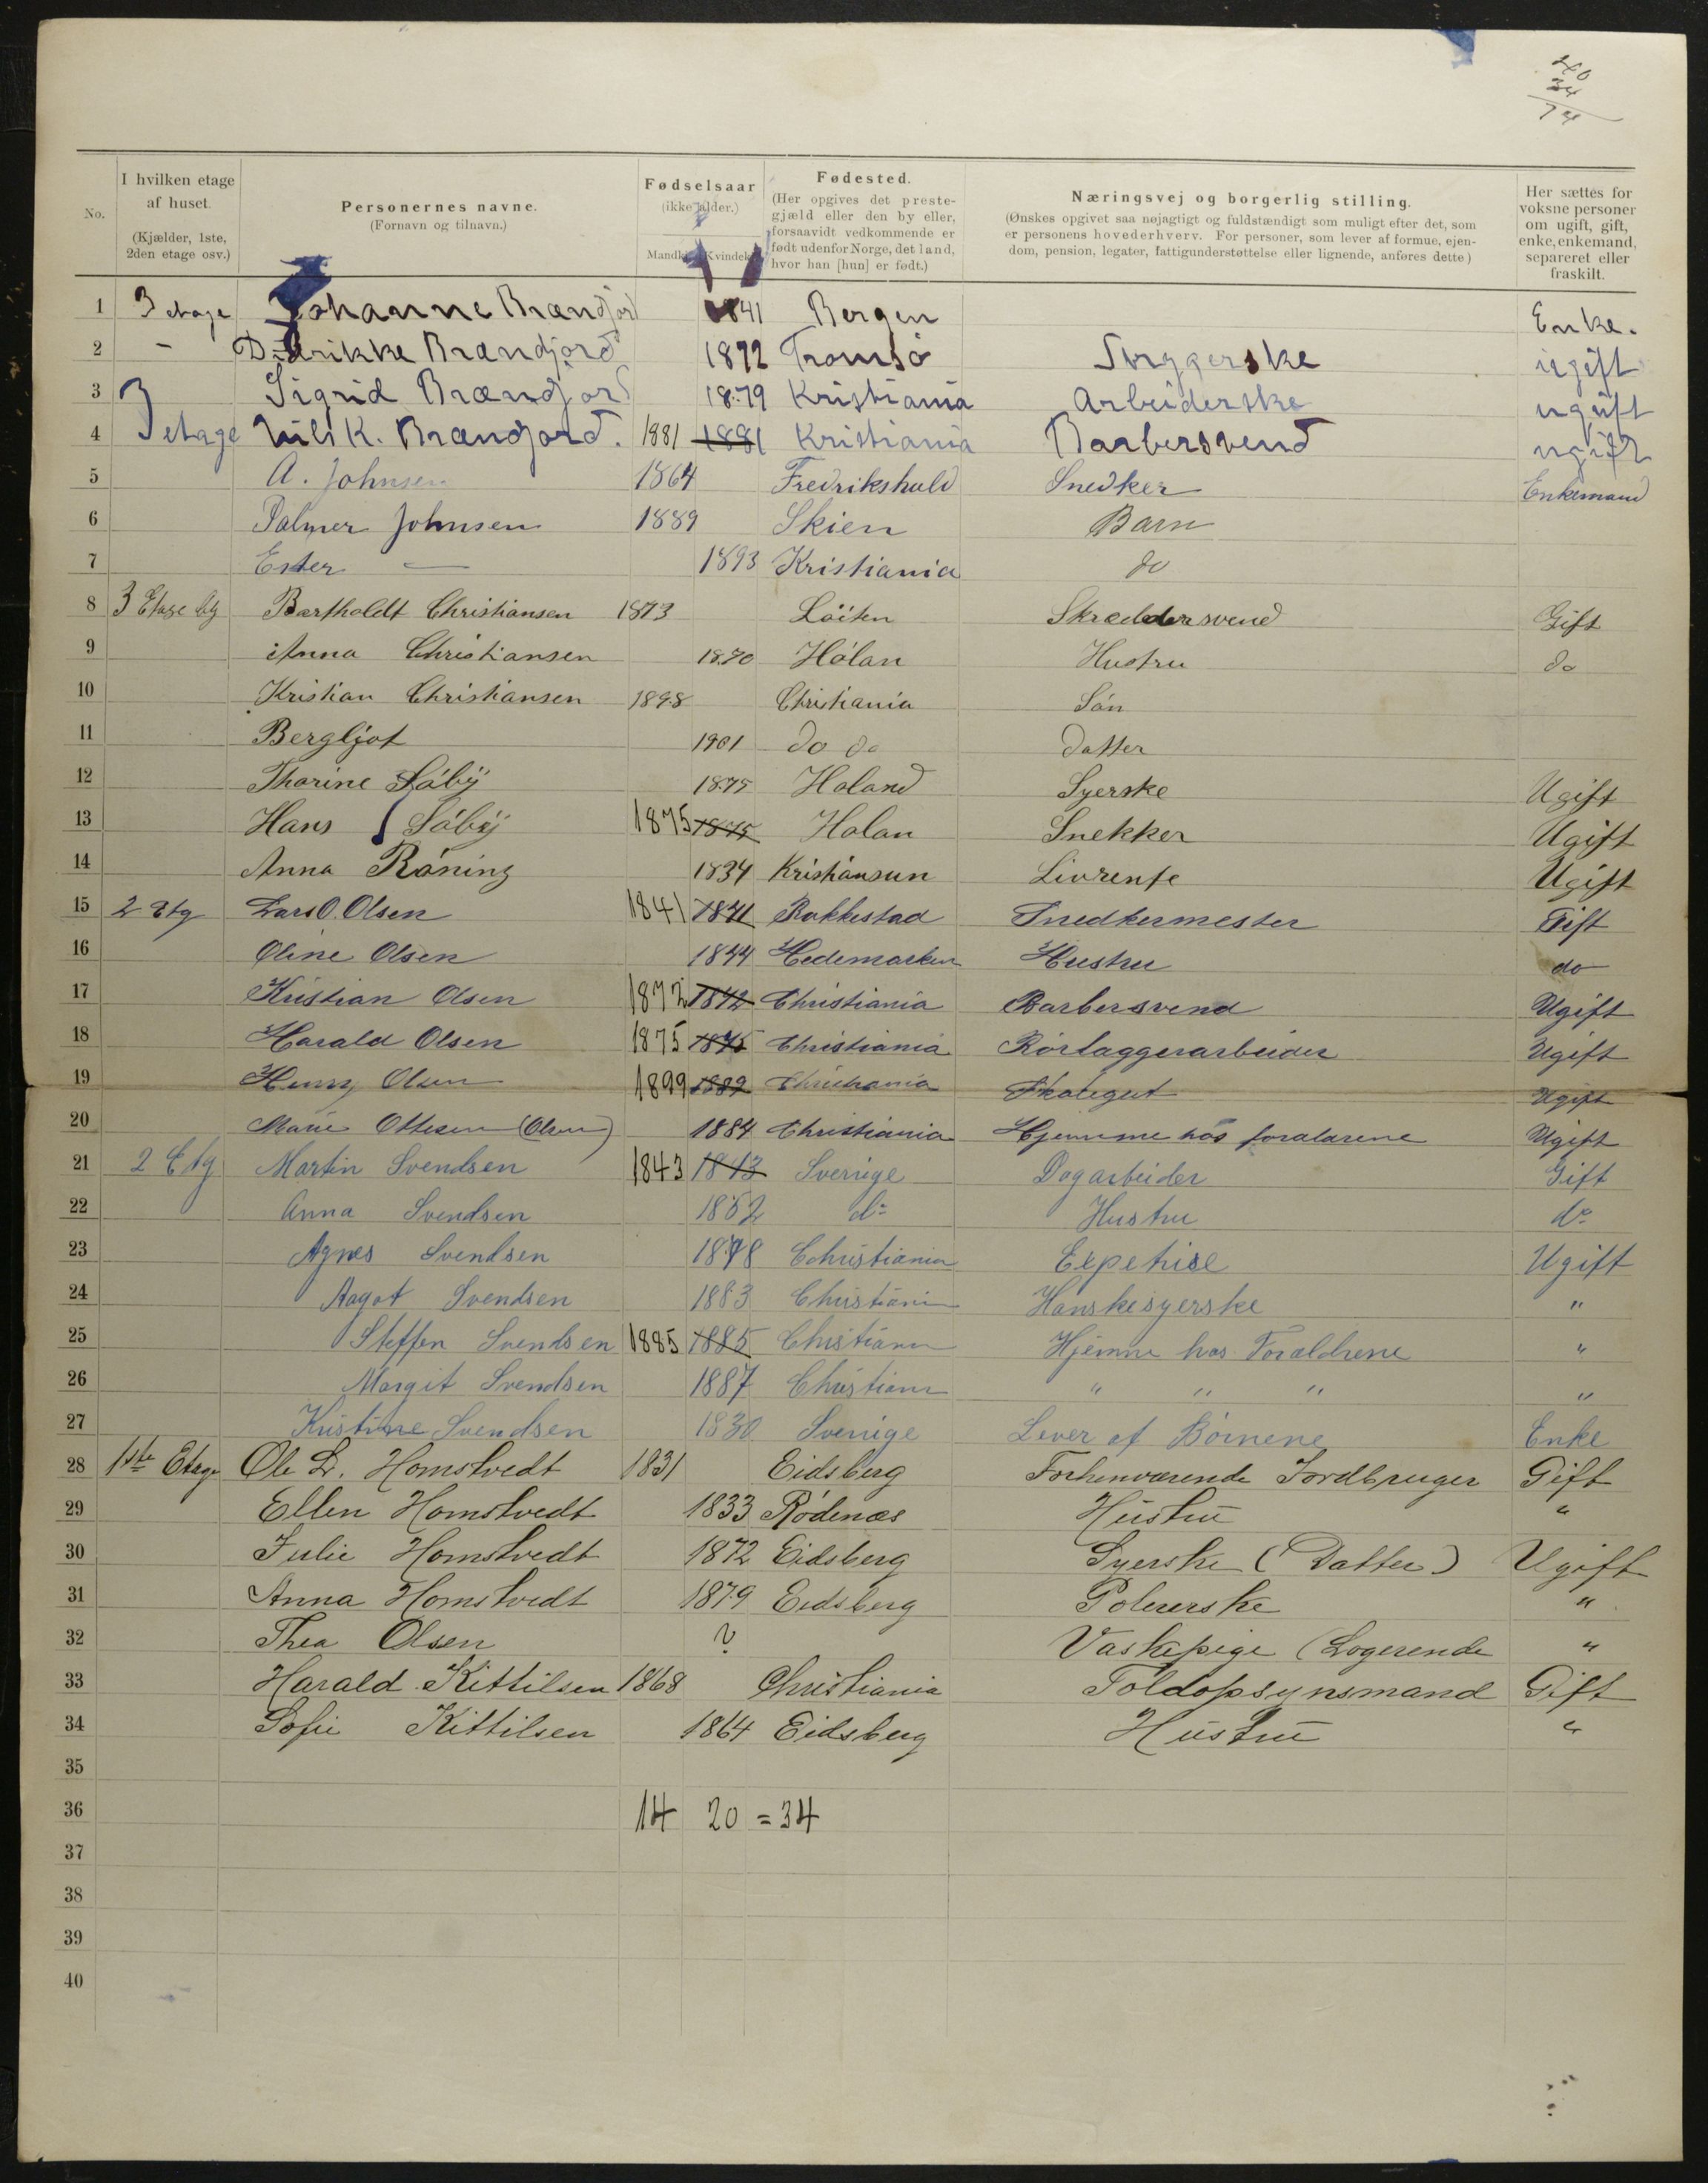 40
34
74
No.
I hvilken etage af huset. (Kjælder, 1ste, 2den etage osv.)
Personernes navne. (Fornavn og tilnavn.)
Fødselsaar (ikke alder.) Mandkj. Kvindekj.
Fødested. (Her opgives det prestegjæld eller den by eller, forsaavidt vedkommende er født udenfor Norge, det land, hvor han [hun] er født.)
Næringsvej og borgerlig stilling. (Ønskes opgivet saa nøjagtigt og fuldstændigt som muligt efter det, som er personens hovederhverv. For personer, som lever af formue, ejendom, pension, legater, fattigunderstøttelse eller lignende, anføres dette)
Her sættes for voksne personer om ugift, gift, enke, enkemand, separeret eller fraskilt.
1 3 etage Johanne Brændjord 1841 Bergen Enke.
2 – Didrikke Brændjord 1872 Tromsø ugift
3 3 Sigrid Brændjord 1879 Kristiania Arbeiderske ugift
4 etage Nils K. Brændjord. 1881 1881 Kristiania Barbersvend ugift
5 A. Johnsen 1864 Fredrikshald Snedker Enkemand
6 Palmer Johnsen 1889 Skien Barn
7 Ester — 1893 Kristiania do
8 3 Etage Bartholdt Christiansen 1873 Löiten Skræddersvend Gift
9 Anna Christiansen 1870 Hölan Hustru do
10 Kristian Christiansen 1898 Christiania Sön
11 Bergljot 1901 do do Datter
12 Thorine Söby 1875 Holand Syerske Ugift
13 Hans Söby 1875 1875 Holan Snekker Ugift
14 Anna Röning 1834 Kristiansun Livrente Ugift
15 2 Etg Lars O. Olsen 1841 1841 Rakkestad Snedkermester Gift
16 Oline Olsen 1844 Hedemarken Hustru do
17 Kristian Olsen 1872 1872 Christiania Barbersvend Ugift
18 Harald Olsen 1875 1875 Christiania Rörlaggerarbeider Ugift
19 Henry Olsen 1899 1889 Christiania Skolegut Ugift
20 Marie Ottesen (Olsen) 1884 Christiania Hjemme hos foraldrene Ugift
21 2 Etg Martin Svendsen 1843 1843 Sverrige Dagarbeider Gift
22 Anna Svendsen 1852 do Hustru do
23 Agnes Svendsen 1878 Christiania Expetrise Ugift
24 Aagot Svendsen 1883 Christiani Hanskesyerske "
25 Steffen Svendsen 1885 1885 Christiani Hjemme hos Foraldrene "
26 Margit Svendsen 1887 Christiani " " " "
27 Kristine Svendsen 1830 Sverrige Lever af Börnene Enke
28 1ste Etage Ole L. Homstvedt 1831 Eidsberg Forhenværende Jordbruger Gift
29 Ellen Homstvedt 1833 Rödenæs Hustru "
30 Julie Homstvedt 1872 Eidsberg Syerske (Datter) Ugift
31 Anna Homstvedt 1879 Eidsberg Polererske "
32 Thea Olsen ? Vaskepige (Logerende "
33 Harald Kittilsen 1868 Christiania Toldopsynsmand Gift
34 Sofie Kittilsen 1864 Eidsberg Hustru "
35
36 14 20 = 34
37
38
39
40